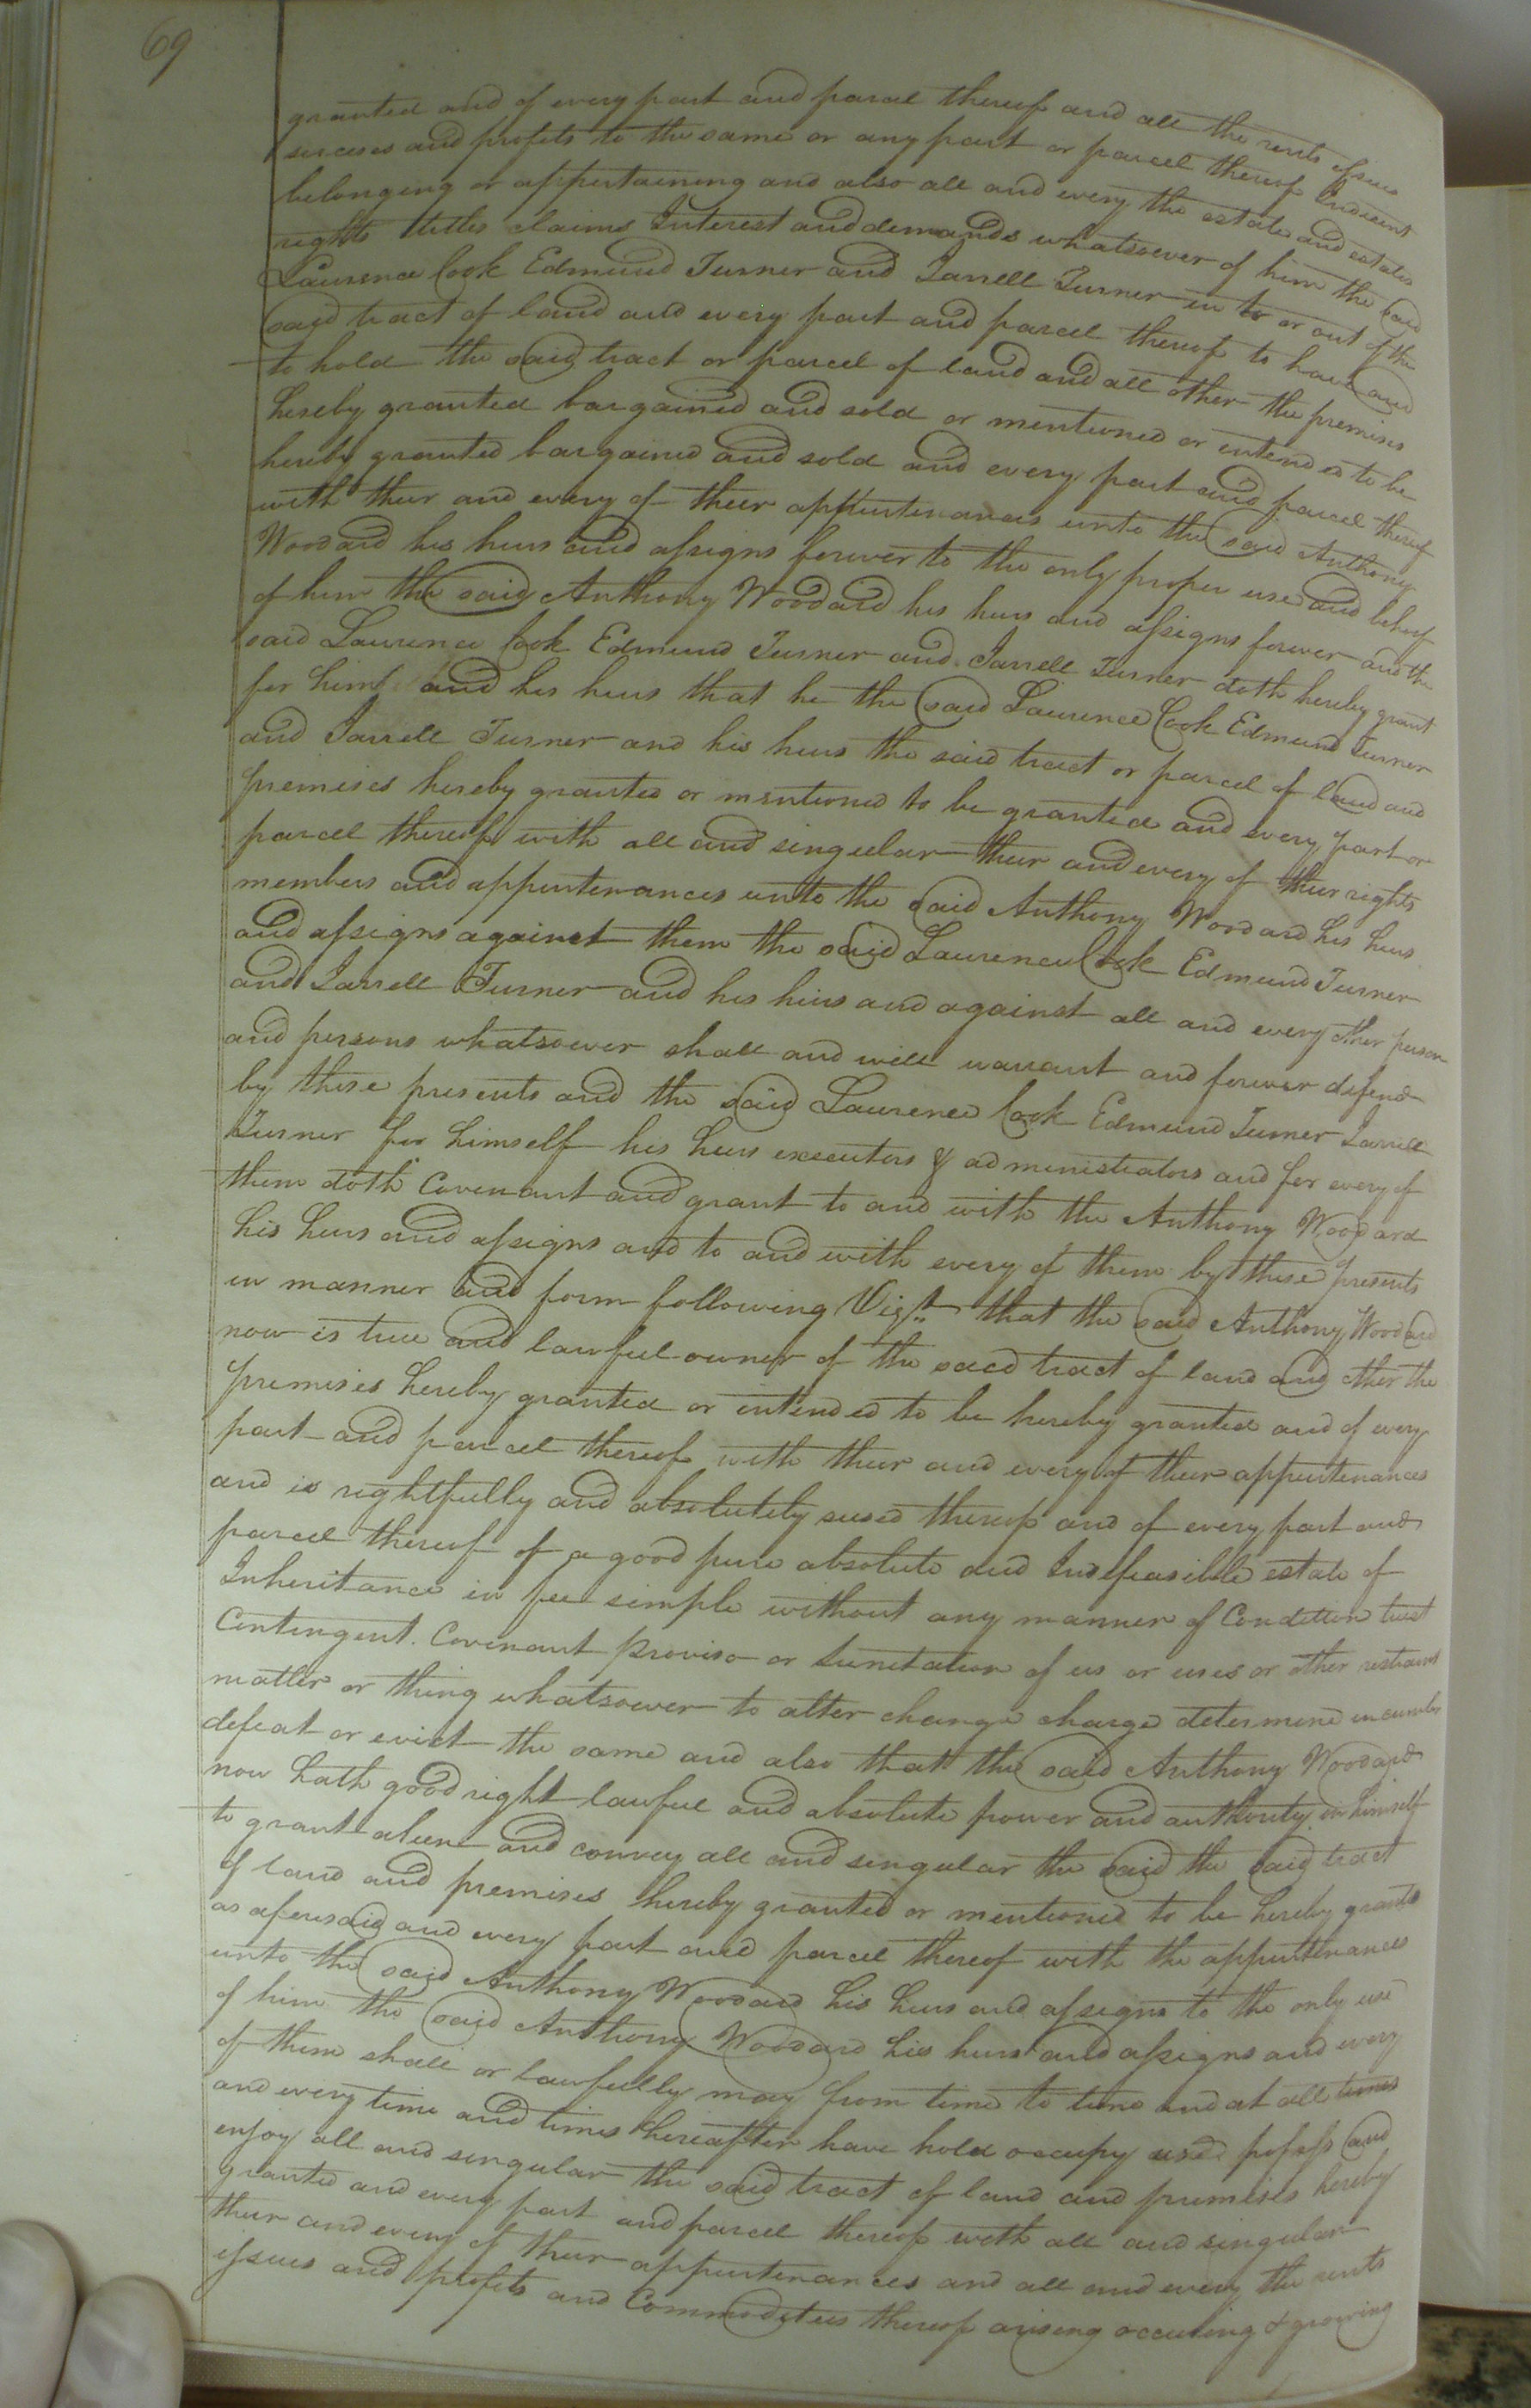 69
granted and of every part and parcel thereof and all the rents issues
and profits to the same or any part or parcel thereof Indecent
belonging or appertaining and also all and every the estate and estates
rights titles claims Interest and demands whatsoever of him the said
Laurence Cook Edmund Turner and Jarrell Turner in to or out of the
said tract of land and every part and parcel thereof to have and
to hold the said tract or parcel of land and all other the premises
hereby granted bargained and sold or mentioned or intended to be
hereby granted bargained and sold and every part and parcel thereof
with their and every of their appurtenances unto the said Anthony
Woodard his heirs and assigns forever to the only proper use and behoof
of him the said Anthony Woodard his heirs and assigns forever and the
said Laurence Cook Edmund Turner and Jarrell Turner doth hereby grant
for him and his heirs that he the said Laurence Cook Edmund Turner
and Jarrell Turner and his heirs the said tract or parcel of land and
premises hereby granted or mentioned to be granted and every part or
parcel thereof with all and singular their and every of their rights
members and appurtenances unto the said Anthony Woodard his heirs
and assigns against them the said Laurence Cook Edmund Turner
and Jarrell Turner and his heirs and against all and every other person
and persons whatsoever shall and will warrant and forever defend
by these presents and the said Laurence Cook Edmund Turner Jarrell
Turner for himself his heirs executors & administrators and for every of
them doth Covenant and grant to and with the Anthony Woodard
his heirs and assigns and to and with every of them by these presents
in manner and form following Vizt. that the said Anthony Woodard
now is true and lawful owner of the said tract of land and other the
premises hereby granted or intended to be hereby granted and of every
part and parcel thereof with their and every of their appurtenances
and is rightfully and absolutely seised thereof and of every part and
parcel thereof of a good pure absolute and Indefeasible estate of
Inheritance in fee simple without any manner of Condition trust
Contingent. Covenant proviso or limitation of us or uses or other restraint
matter or thing whatsoever to alter change charge determine incumber
defeat or evict the same and also that the said Anthony Woodard
now hath good right lawful and absolute power and authority in himself
to grant alien and convey all and singular the said the said tract
of land and premises hereby granted or mentioned to be hereby granted
as aforesaid and every part and parcel thereof with the appurtenances
unto the said Anthony Woodard his heirs and assigns to the only use
of him the said Anthony Woodard his heirs and assigns and every
of them shall or lawfully may from time to time and at all times
and every time and times hereafter have hold occupy used possess and
enjoy all and singular the said tract of land and premises hereby
granted and every part and parcel thereof with all and singular
their and every of their appurtenances and all and every the rents
issues and profits and Commodities thereof arising occuring & growing